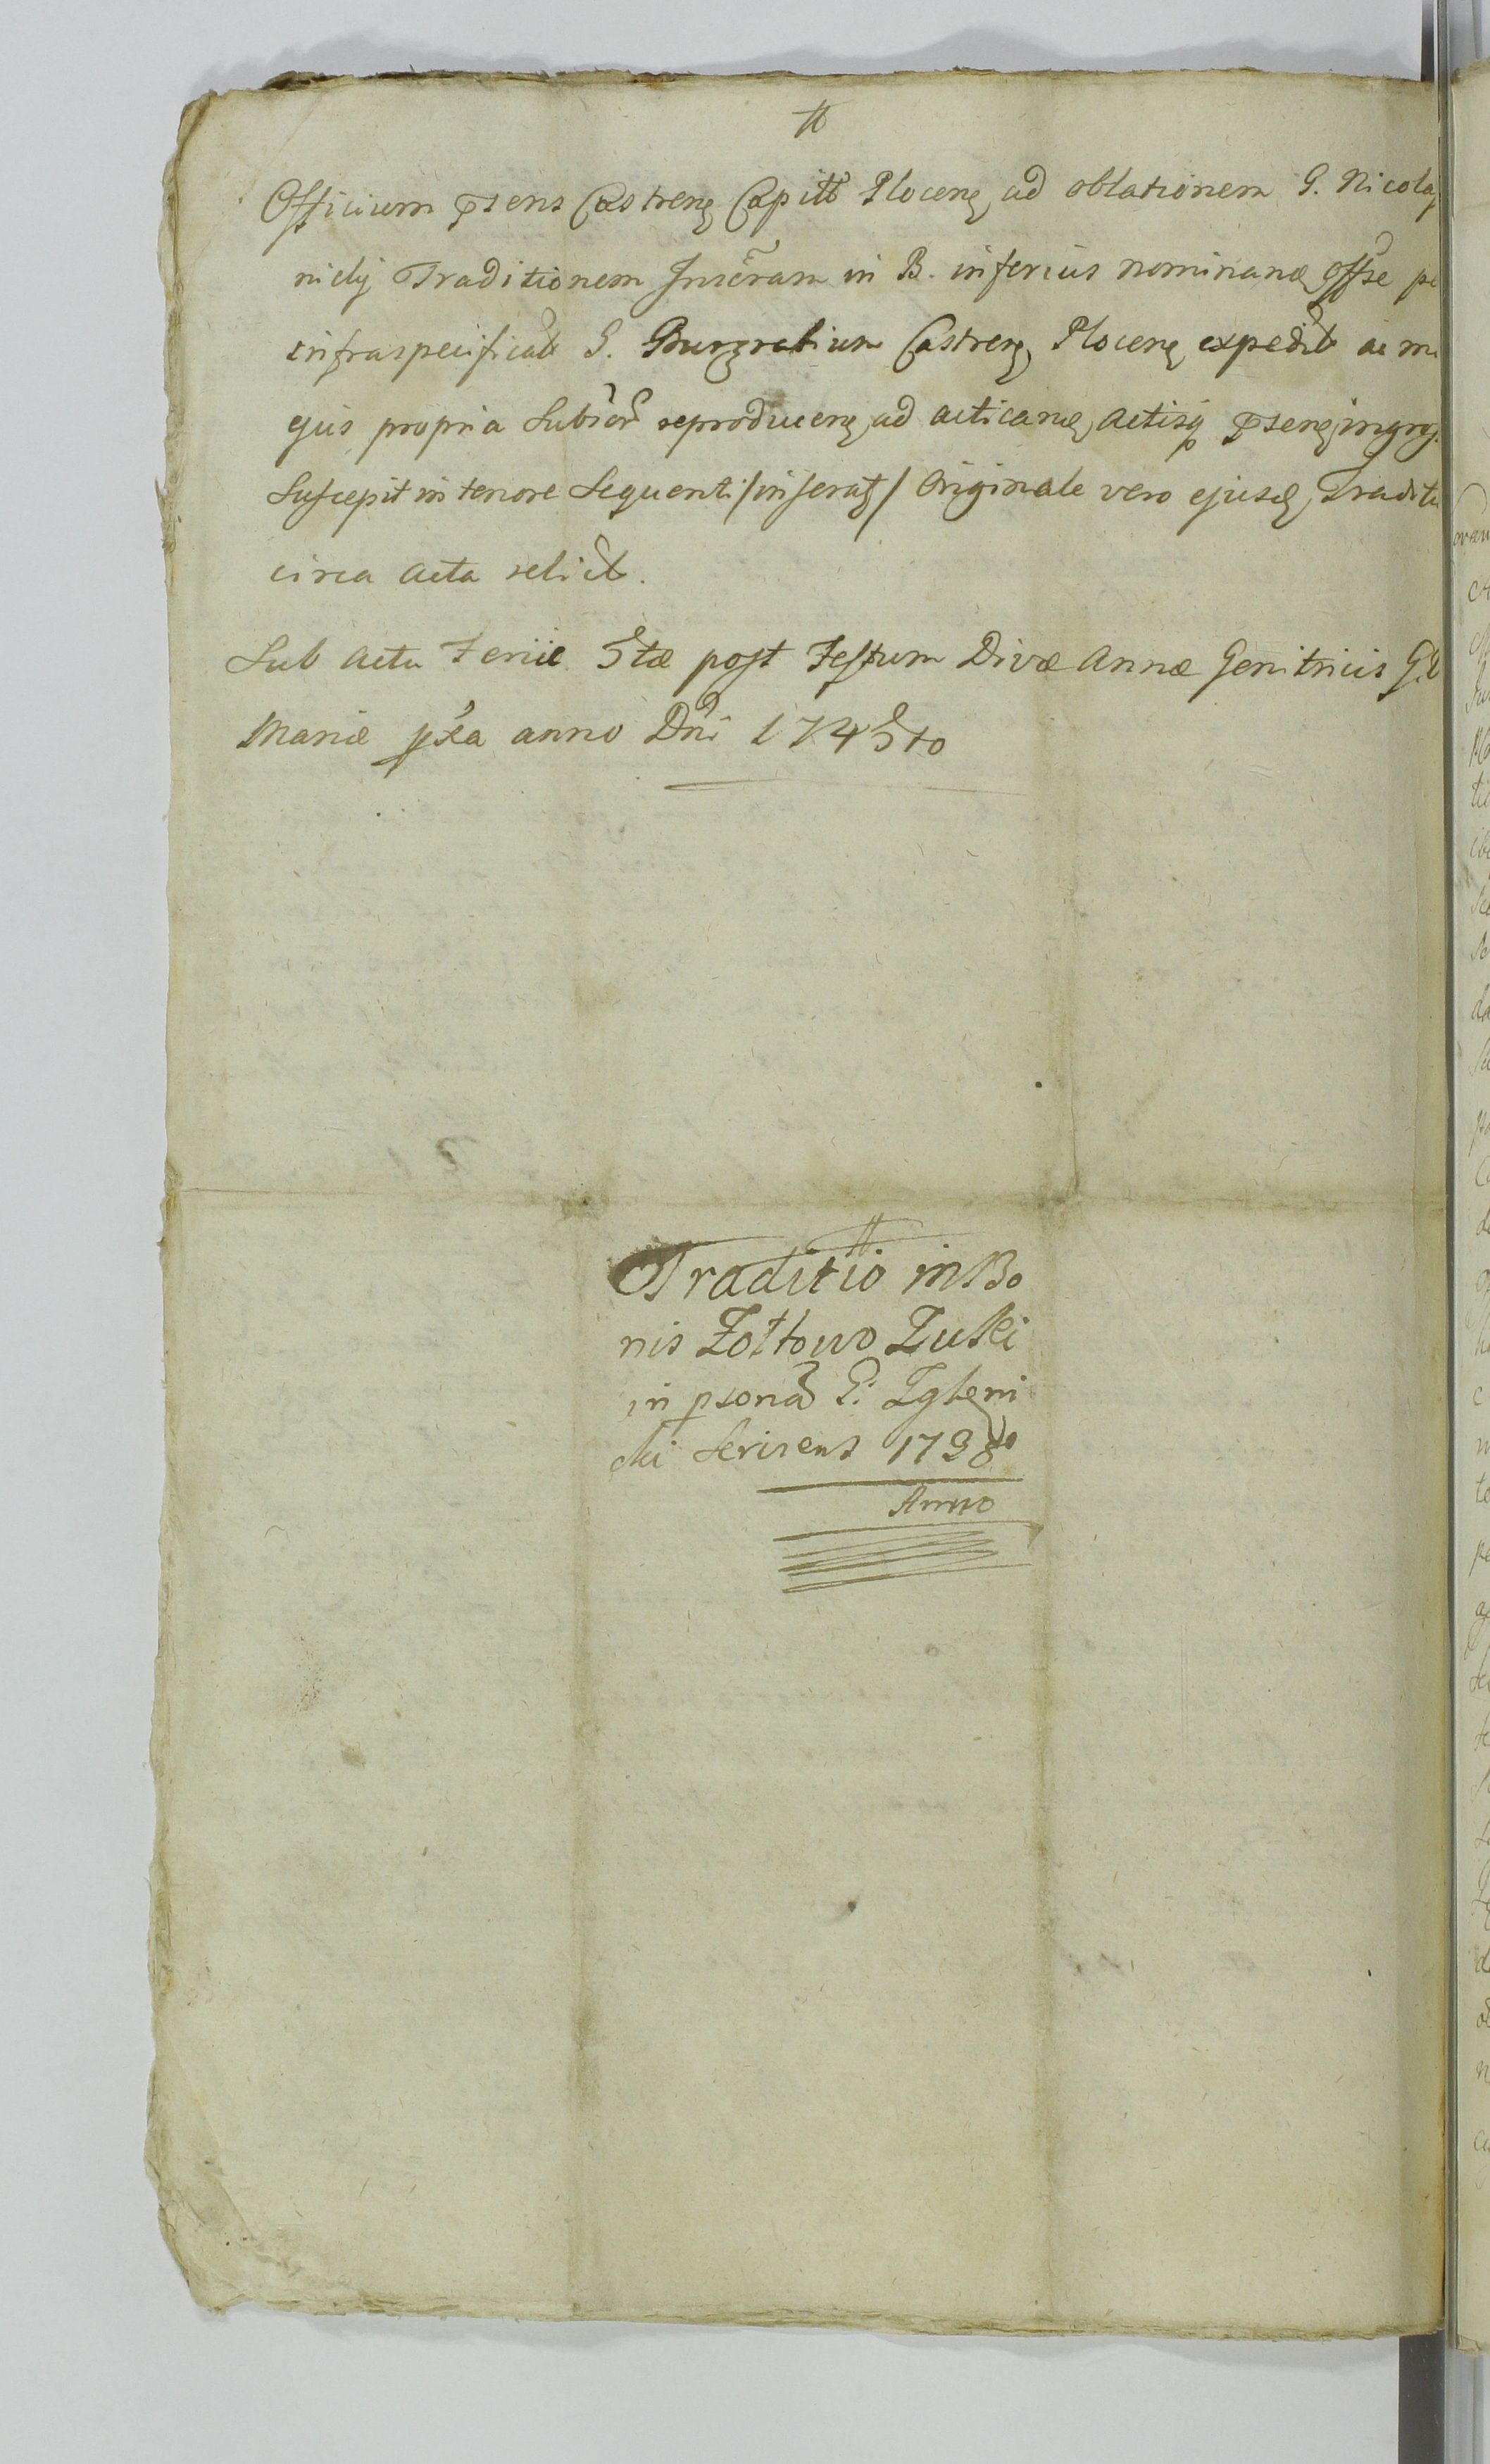 Officium pntens Castren Capitt Plocen ad oblationem G. Nicola
nicky Traditionem Juseram in B. inferius nominan offse pe
infraspecificatt G. Burgrabium Castren Plocen expedit ac m
ejus propria Subscr reproducen ad acticand Actisq psen ingros
Suscepit in tenore Sequenti /inserat/ Originale vero ejusd Traditi
circa acta relict.
Sub Actu Feriæ 5tæ post Festum Divæ Annæ Genitricis G.V
Mariæ pxa anno Dni 1745to
Traditio in Bo
nis Zottowo Zuski
in psona G. Zgleni
cki Servient 1738
Anno